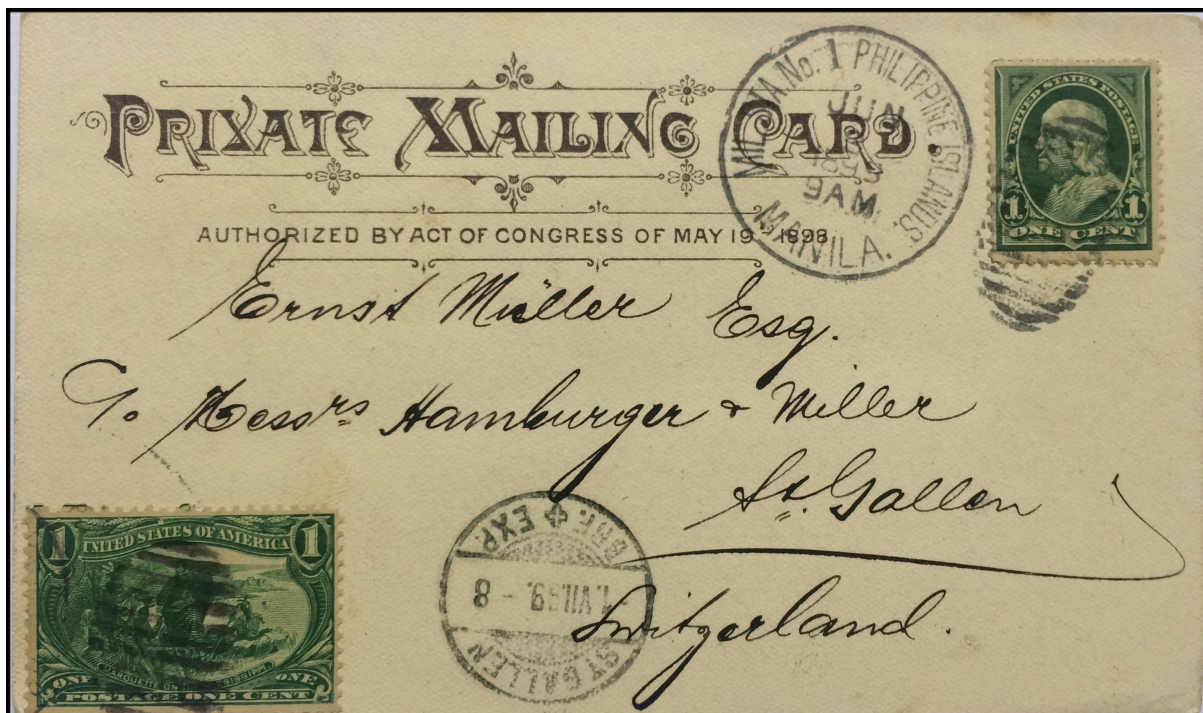 PRIVATE MAILING CARD
AUTHORIZED BY ACT OF CONGRESS OF MAY 19 1898
MIL. STA. No. 1 PHILIPPINE ISLANDS.
JUN
1899
9 AM
MANILA.
UNITED STATES POSTAGE
1 1
ONE CENT
Ernst Müller Esq.
To Messrs Hamburger & Müller
St. Gallen
Switzerland.
1 UNITED STATES OF AMERICA 1
MARQUETTE ON THE MISSISSIPPI
ONE ONE
POSTAGE ONE CENT
ST. GALLEN
1.VII.99. - 8
BRF. EXP.